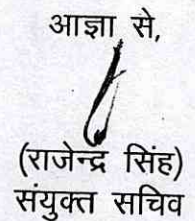 आज्ञा से,
(राजेन्द्र सिंह)
संयुक्त सचिव